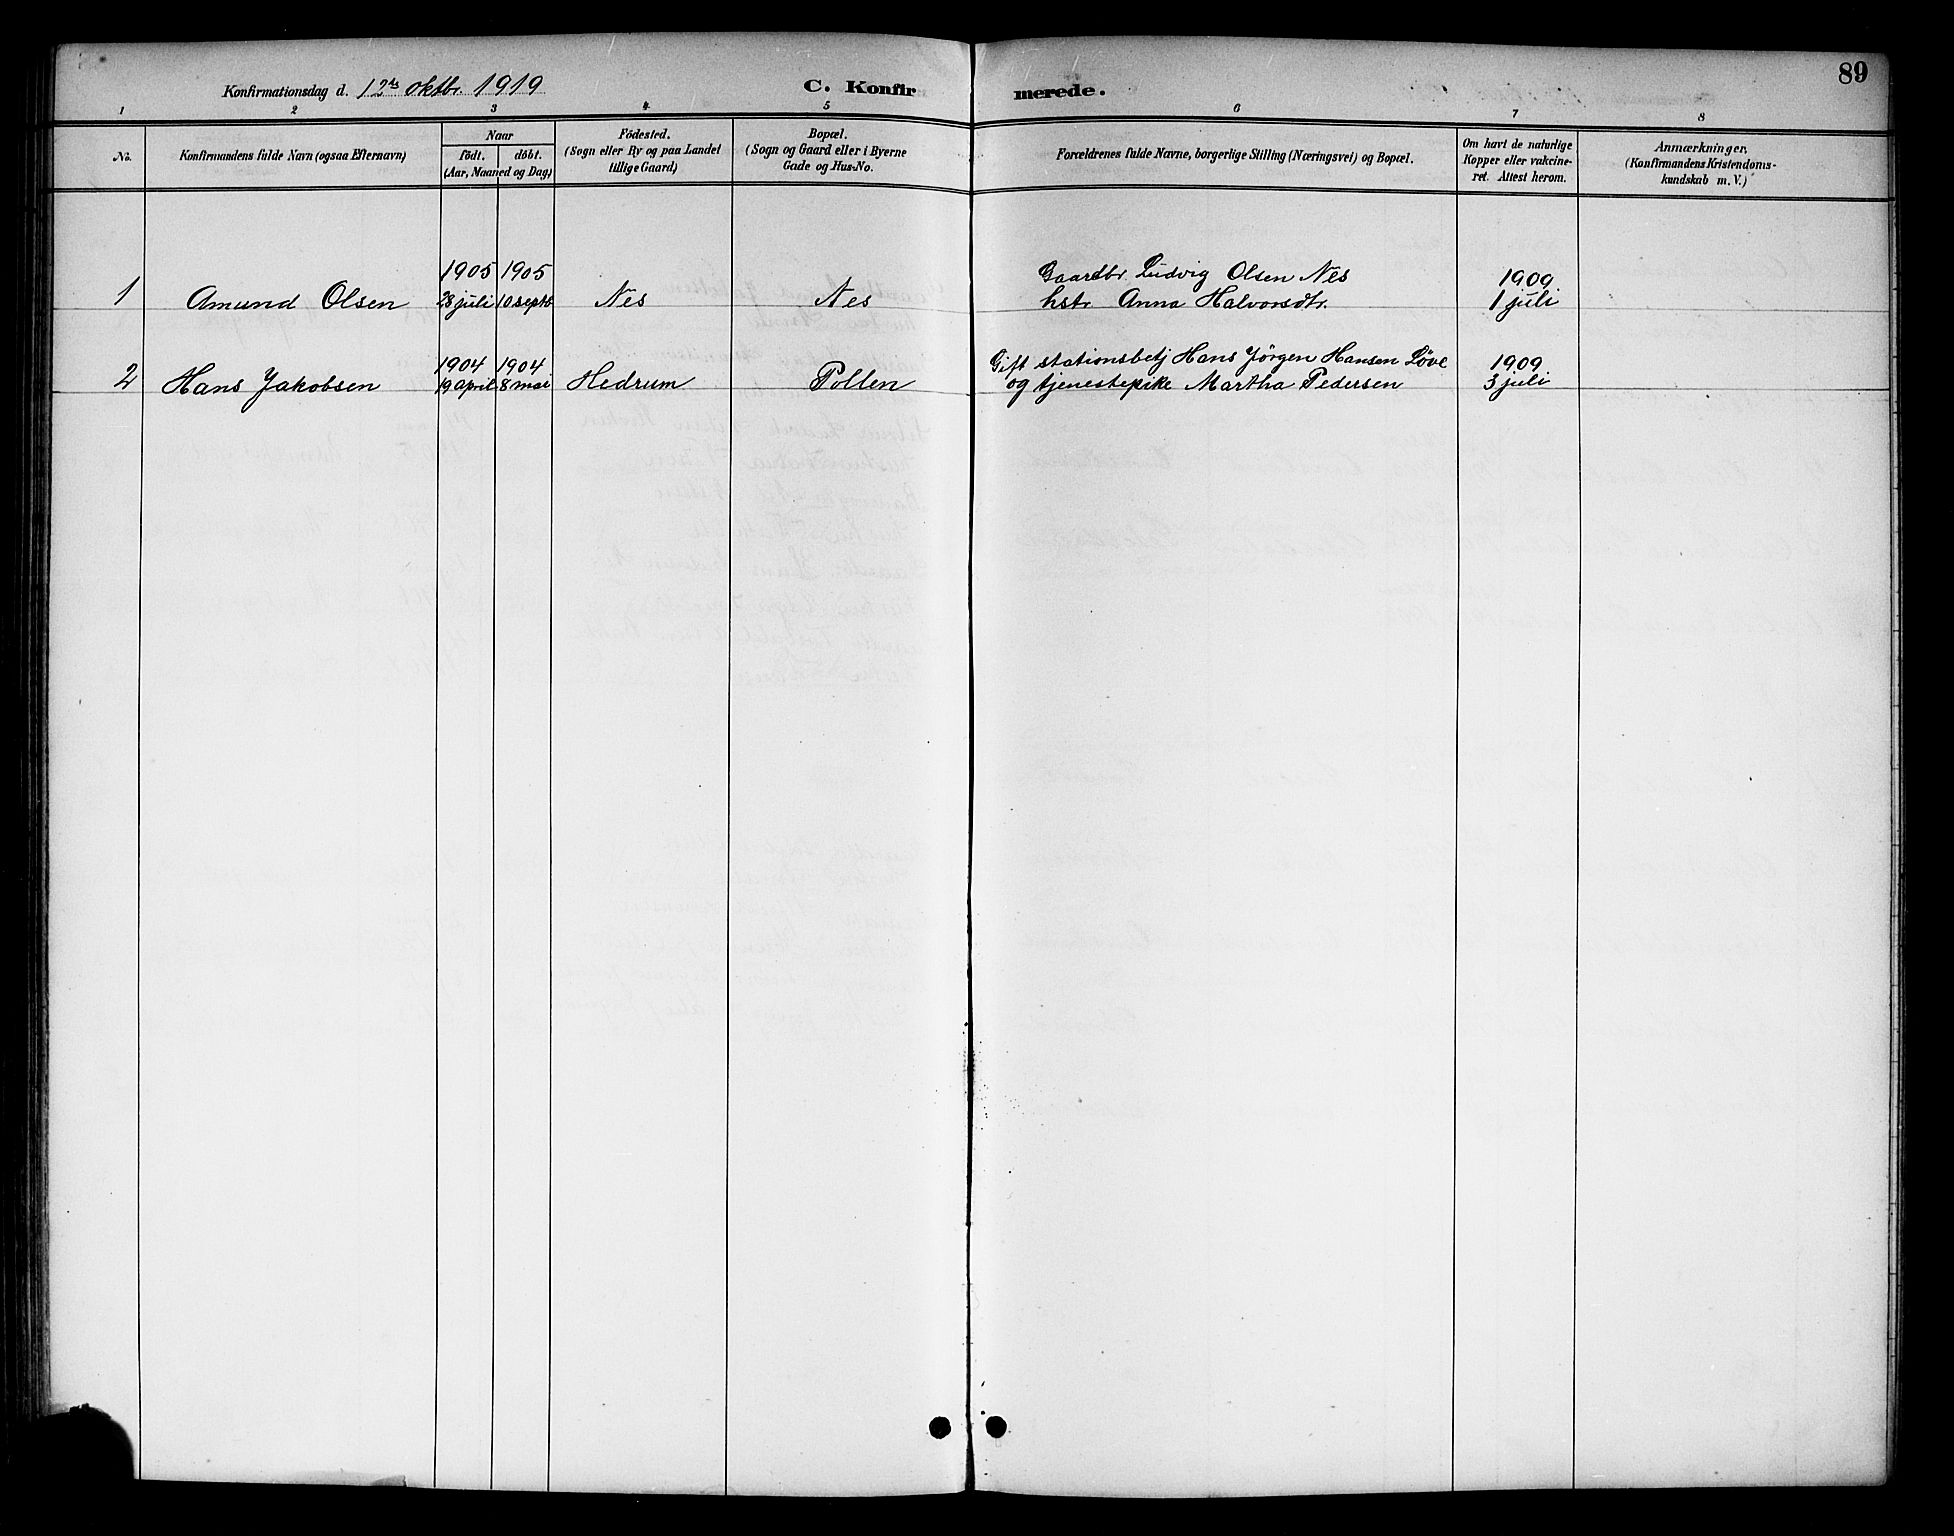 89
Konfirmationsdag d. 12te oktbr. 1919
C. Konfirmerede.
1 2 3 4 5 6 7 8
No.
Konfirmandens fulde Navn (ogsaa Efternavn)
Naar
födt. döbt.
(Aar, Maaned og Dag)
Födested.
(Sogn eller By og paa Landet
tillige Gaard)
Bopæl.
(Sogn og Gaard eller i Byerne
Gade og Hus-No.
Forældrenes fulde Navne, borgerlige Stilling (Næringsvei) og Bopæl.
Om havt de naturlige
Kopper eller vakcine-
ret. Attest herom.
Anmærkninger,
(Konfirmandens Kristendoms-
kundskab m. V.)
1905 1905 Gaardbr Ludvig Olsen Nes 1909
1 Amund Olsen 28 juli 10 septb Nes Nes hstr. Anna Halvorsdtr. 1 juli
1904 1904 Gift stationsbetj Hans Jörgen Hansen Löve 1909
2 Hans Jakobsen 19 april 8 mai Hedrum Pollen og tjenestepike Martha Pedersen 3 juli